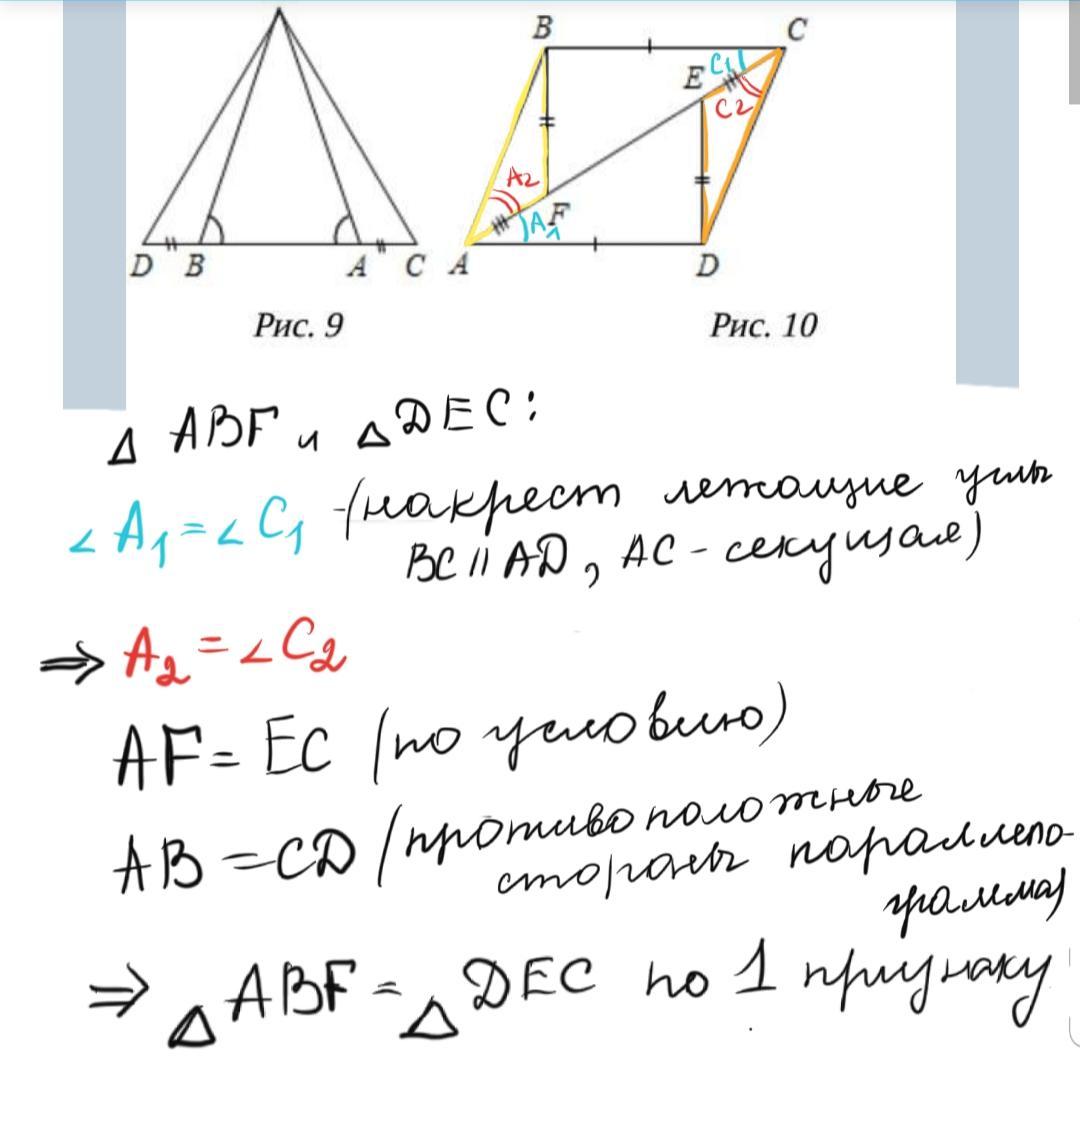 B C
E C1
C2
A2
A1 F
D B A C A D
Рис. 9 Рис. 10
Δ ABF и ΔDEC:
∠A1=∠C1 -(накрест лежащие углы
BC || AD, AC - секущая)
⇒ A2=∠C2
AF= EC (по условию)
AB =CD (противоположные
стороны параллело-
грамма)
⇒ ΔABF = ΔDEC по 1 признаку